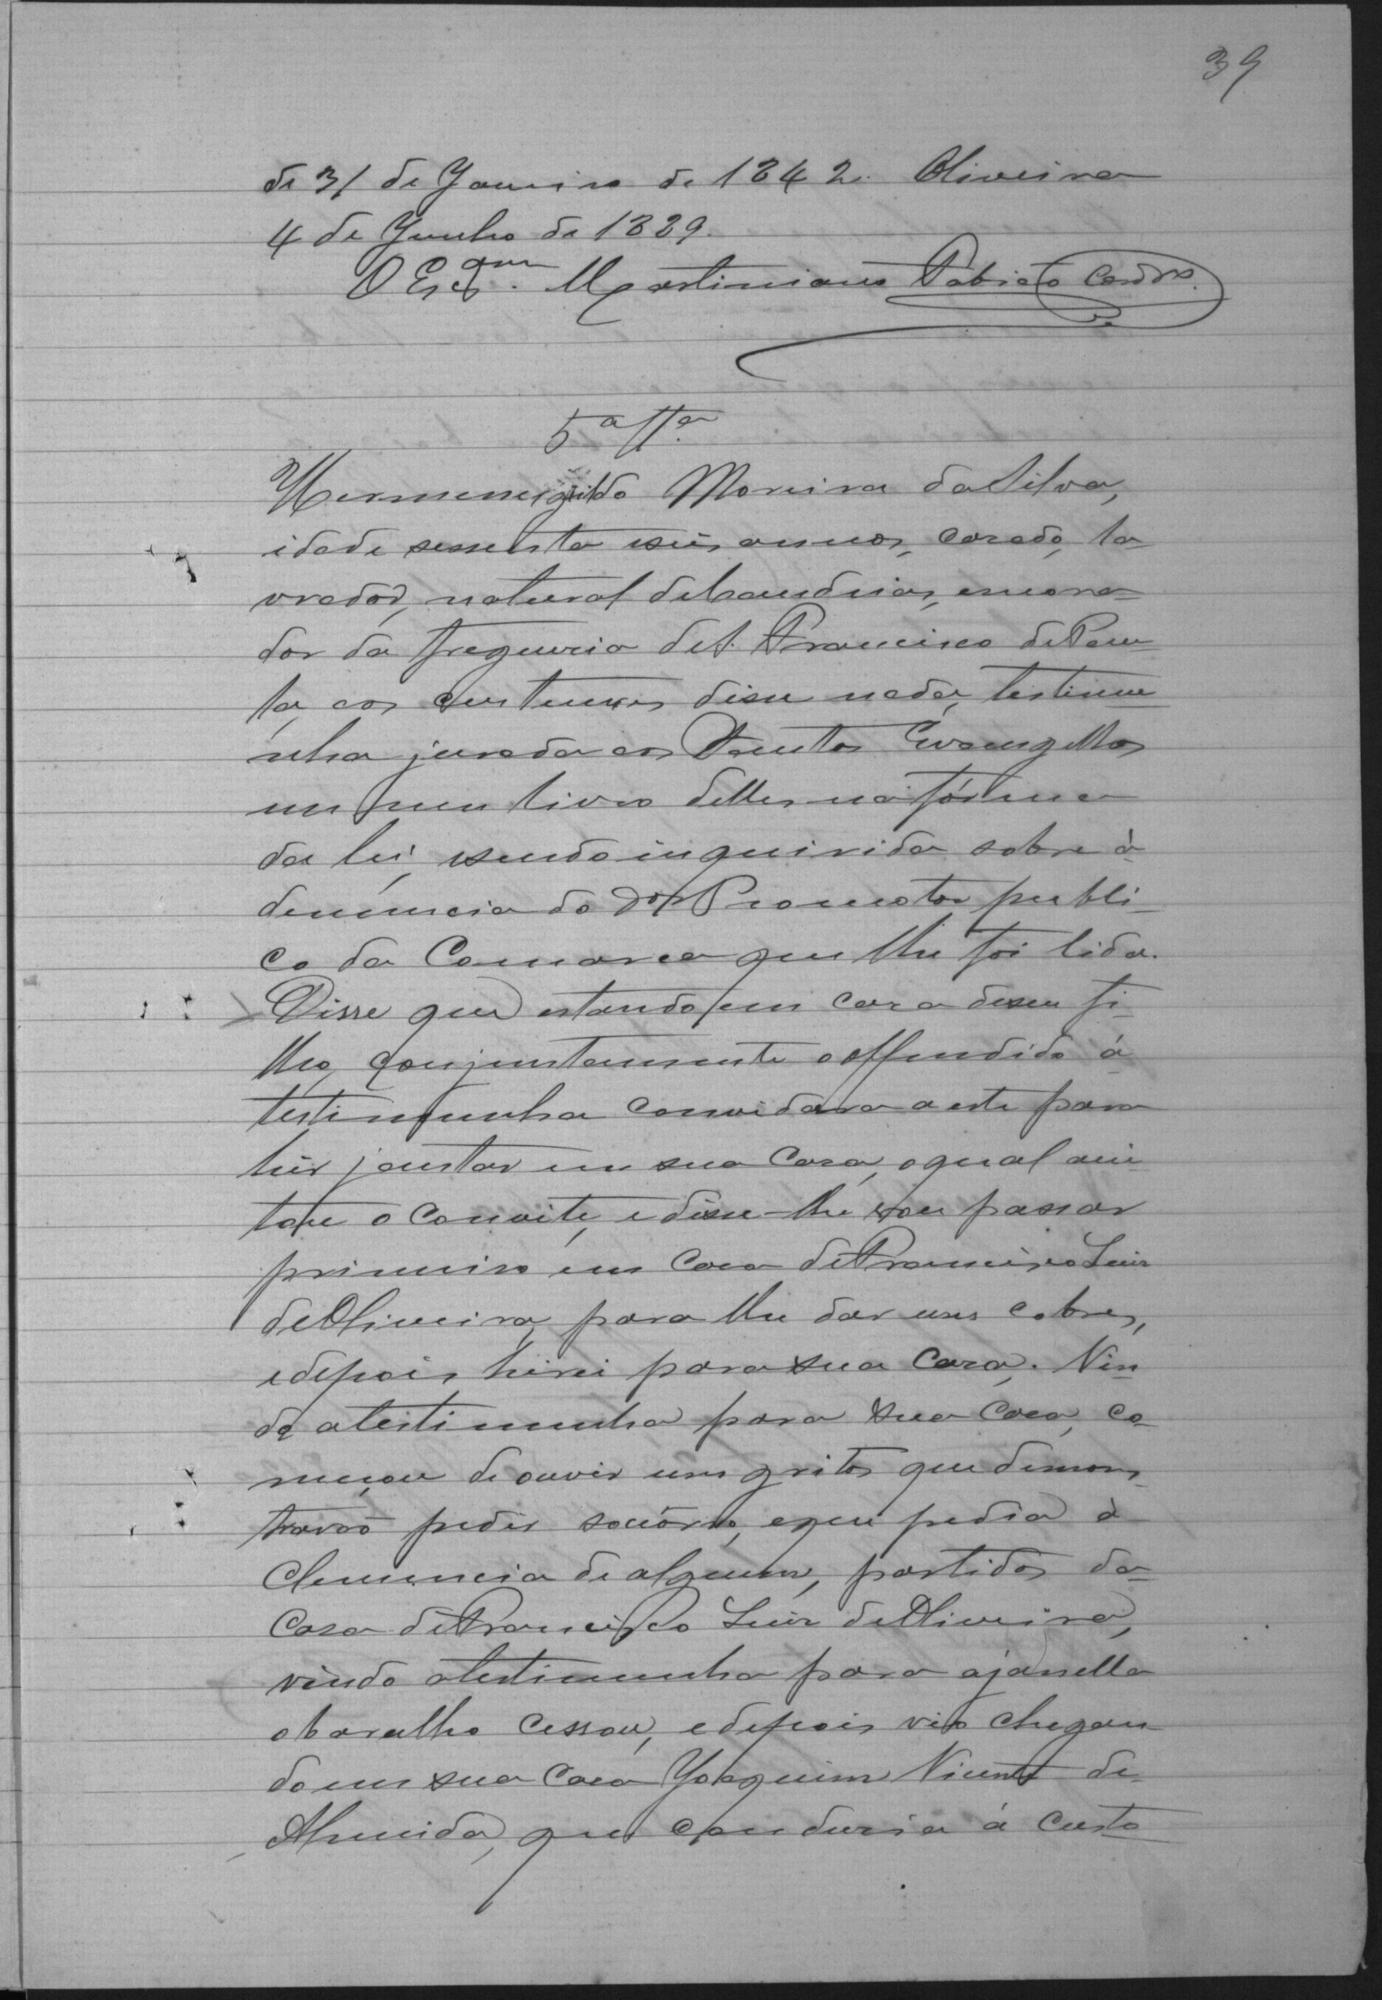 39
de 31 de Janeiro de 1842. Oliveira
4 de Junho de 1889.
O Escram. Martiniano Fabiano Cardzo.
5ª Ttª
Hermenegildo Moreira da Silva,
idade sessenta e seis annos, casado, la-
vrador, natural de Candeias, e mora-
dor da freguezia de S. Francisco de Pau-
la, aos custumes disse nada, testimu-
nha jurada aos Santos Evangelhos
em um livro delles na fórma
da lei, e sendo inquirida sobre à
denuncia do Dor Promotor publi-
co da Comarca que lhe foi lida.
Disse que estando em casa de seu fi-
lho, conjuntamente o offendido á
testimunha convidara a este para
hir jantar em sua casa, o qual acei-
tou o convite, e disse-lhe vou passar
primeiro em casa de Francisco Luiz
de Oliveira, para lhe dar uns cobres,
e depois hirei para sua casa. Vin-
do a testimunha para sua casa, co-
meçou de ouvir uns gritos que demons-
travaõ pedir socórro, e que pedia à
clemencia de alguem, partidos da
casa de Francisco Luiz de Oliveira,
vindo a testimunha para a janella
o barulho cessou, e depois vio chegan-
do em sua casa Joaquim Vicente de
Almeida, que conduzia á custo